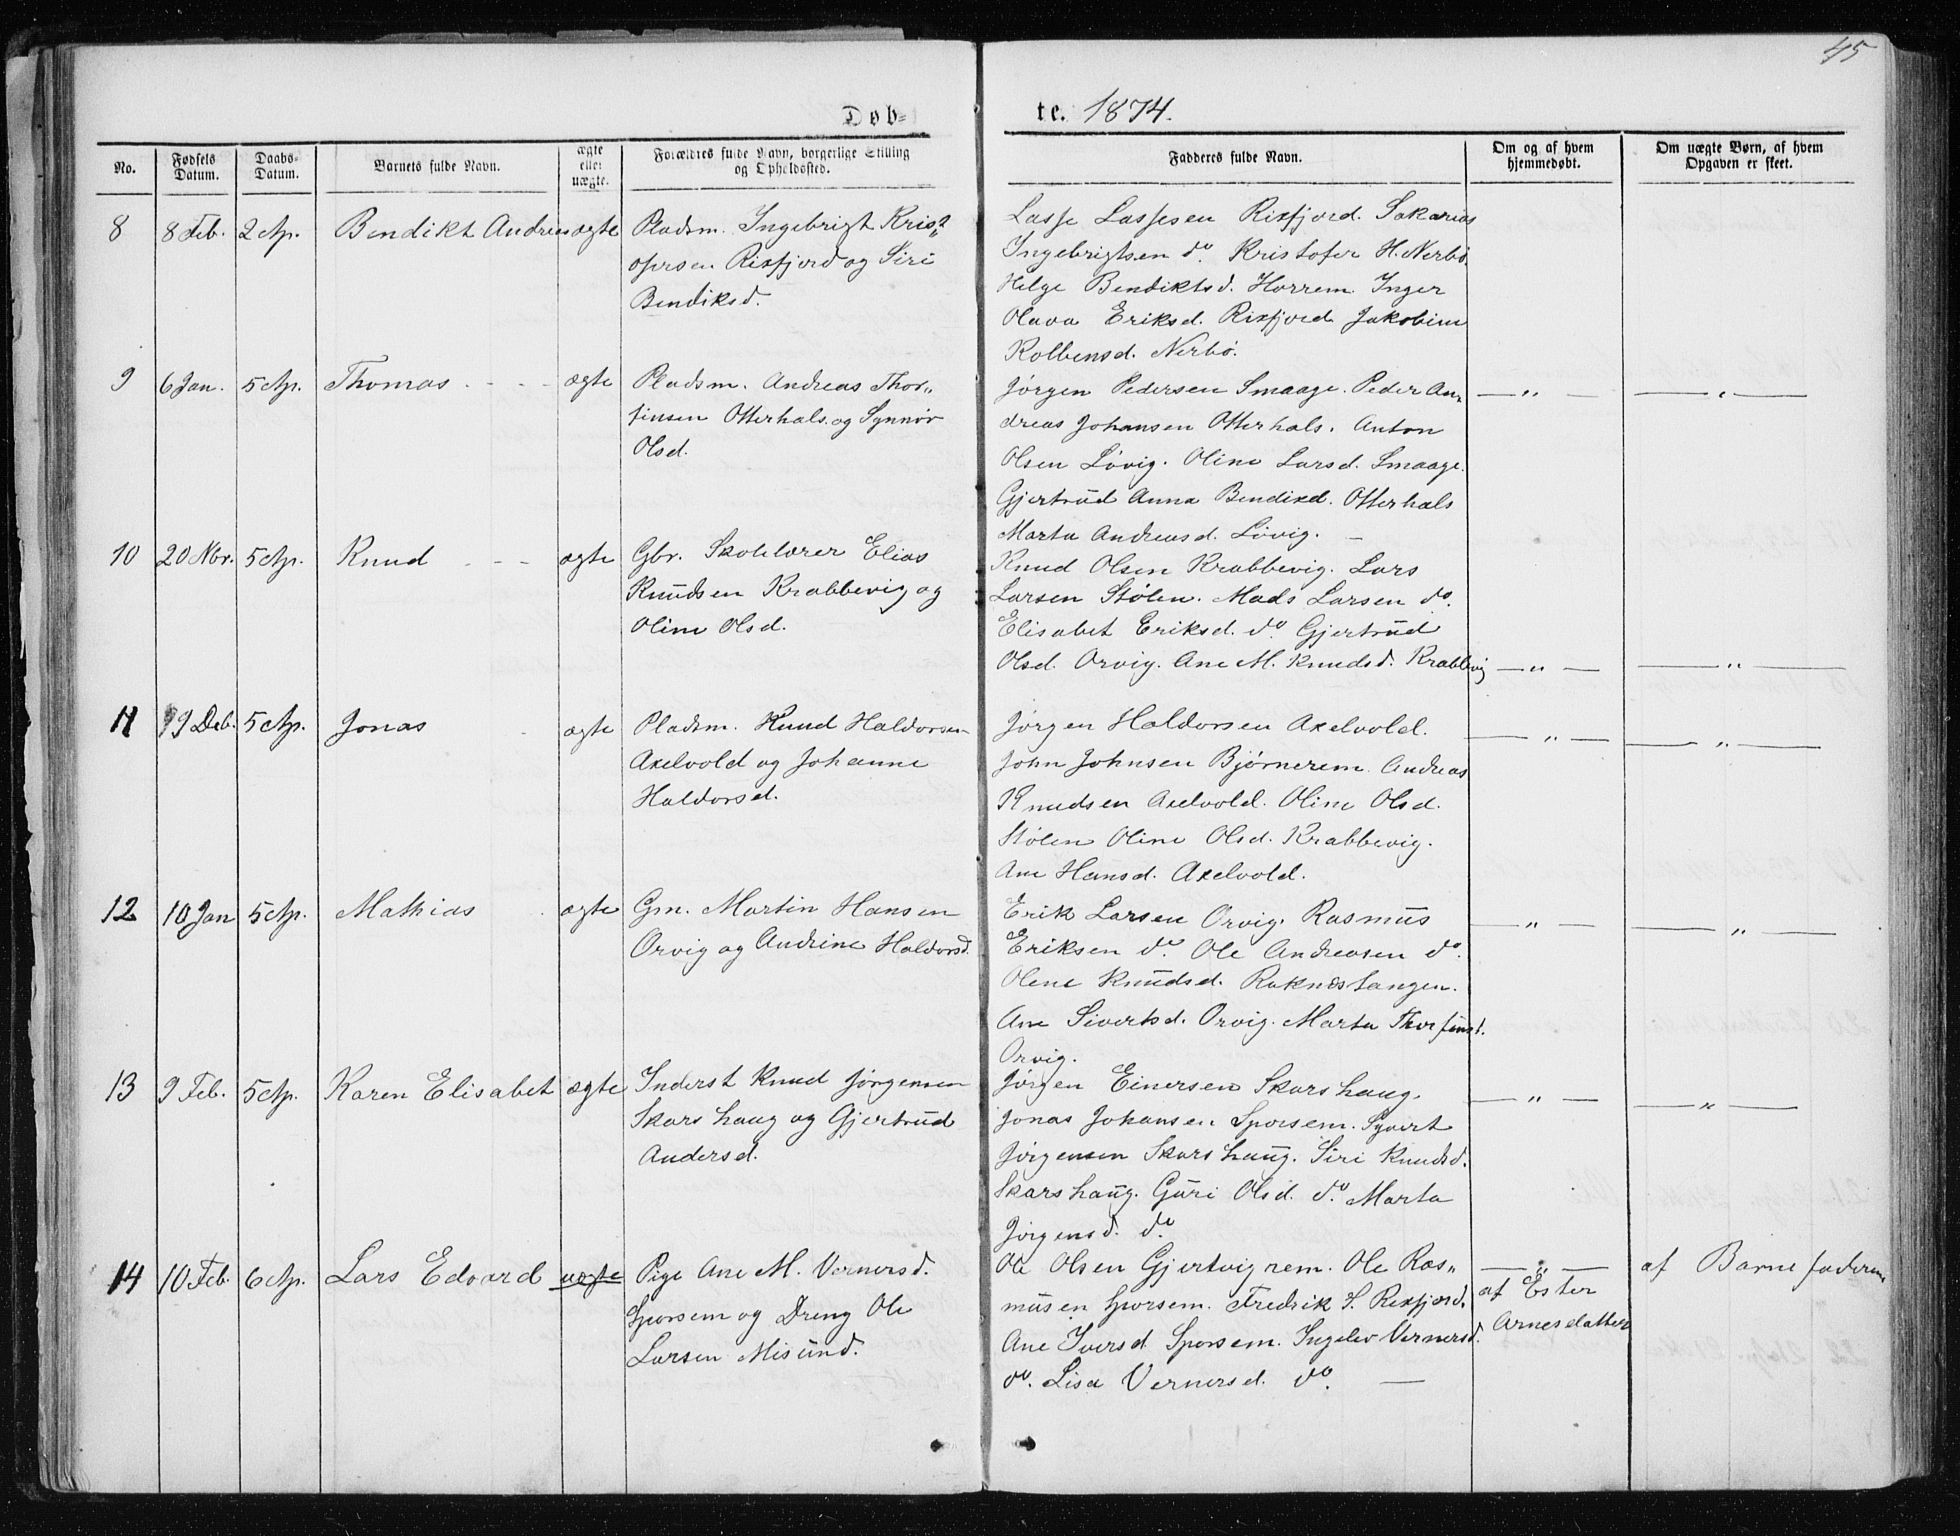 45
Døb-te. 1874.
No. Fødsels Datum. Daabs-Datum. Barnets fulde Navn. ægte eller uægte. Forældres fulde Navn, borgerlige Stilling og Opholdssted. Fadderes fulde Navn. Om og af hvem hjemmedøbt. Om uægte Børn, af hvem Opgaven er skeet.
8 8 Feb. 2 Ap. Bendikt Andreas ægte Pladsm. Ingebrigt Krist„
ofersen Rixfjord og Siri
Bendiksd.
Lasse Lassesen Rixfjord. Sakarias
Ingebrigtsen do. Kristofer H. Nerbø.
Helge Bendiktsd. Horrem. Inger
Olava Eriksd. Rixfjord. Jakobine
Kolbensd. Nerbø.
9 6 Jan. 5 Ap. Thomas - - - ægte Pladsm. Andreas Thor„
finsen Otterhals. og Synnøv
Olsd.
Jørgen Pedersen Smaage. Peder An„ — „ — — „ —
dreas Johansen Otterhals. Anton
Olsen Løvig. Oline Larsd. Smaage.
Gjertrud Anna Bendixd. Otterhals
Marta Andreasd. Løvig. —
10 20 Nbr. 5 Ap. Knud - - - ægte Gbr. Skolelærer Elias
Knudsen Krabbevig og
Oline Olsd.
Knud Olsen Krabbevig. Lars
Larsen Stølen. Mads Larsen do.
Elisabet Eriksd. do. Gjertrud
Olsd. Orvig. Ane M. Knudsd. Krabbevig — „ — — „ —
11 19 Deb. 5 Ap. Jonas - ægte Pladsm. Knud Haldorsen
Axelvold og Johanne
Haldorsd.
Jørgen Haldorsen Axelvold. — „ — — „ —
John Johnsen Bjørnerem. Andreas
Knudsen Axelvold. Oline Olsd.
Stølen Oline Olsd. Krabbevig.
Ane Hansd. Axelvold.
12 10 Jan 5 Ap. Mathias - ægte Gm. Martin Hansen
Orvig og Andrine Haldorsd.
Erik Larsen Orvig. Rasmus — „ — — „ —
Eriksen do. Ole Andreasen do.
Olene Knudsd. Raknestangen.
Ane Sivertsd. Orvig. Marta Thorfinsd.
Orvig.
13 9 Feb. 5 Ap. Karen Elisabet ægte Inderst Knud Jørgensen
Skarshaug og Gjertrud
Andersd.
Jørgen Einersen Skarshaug. — „ — — „ —
Jonas Johansen Sporsem. Syvert
Jørgensen Skarshaug. Siri Knudsd.
Skarshaug. Guri Olsd. do. Marta
Jørgensd. do.
14 10 Feb. 6 Ap. Lars Edvard uægte Pige Ane M. Vernersd.
Sporsem og Dreng Ole
Larsen Misund.
Ole Olsen Gjertvigrem. Ole Ras„ — „ — af Barnefaderen
musen Sporsem. Fredrik S. Rixfjord. af Ester
Ane Iversd Sporsem. Ingelev Vernersd. Arnesdatter
do. Lisa Vernersd. do. —